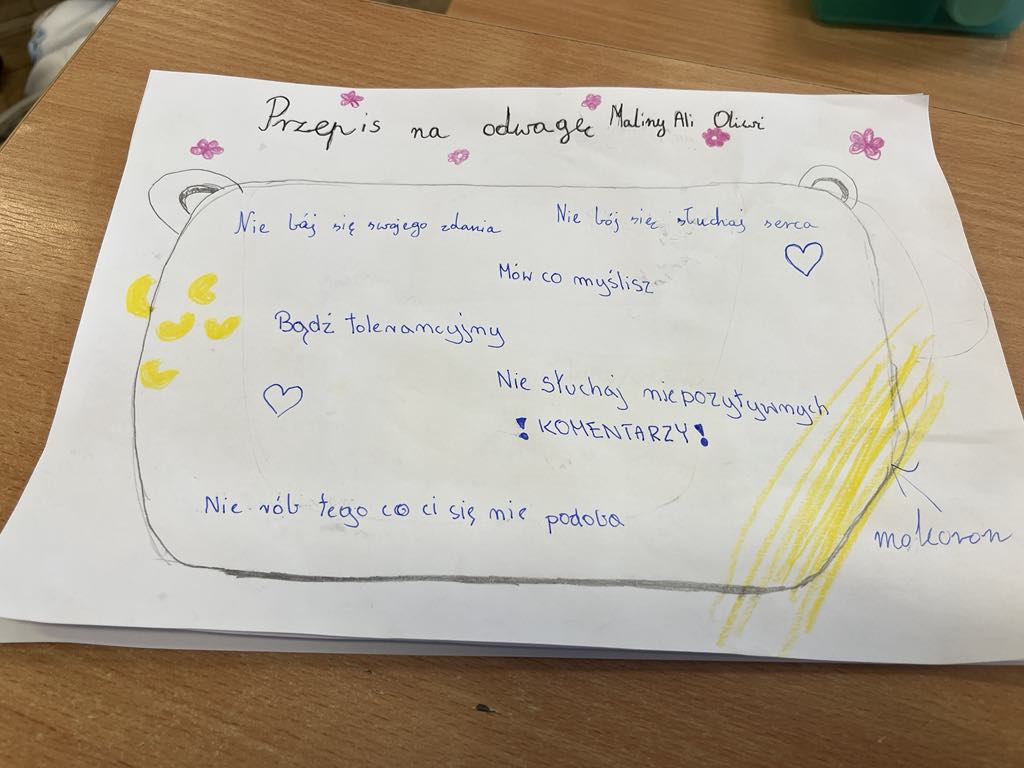 Przepis na odwagę Maliny Ali Oliwi
Nie bój się swojego zdania
Nie bój się słuchaj serca
Mów co myślisz
Bądź tolerancyjny
Nie słuchaj niepozytywnych
! KOMENTARZY !
Nie rób tego co ci się nie podoba
makaron